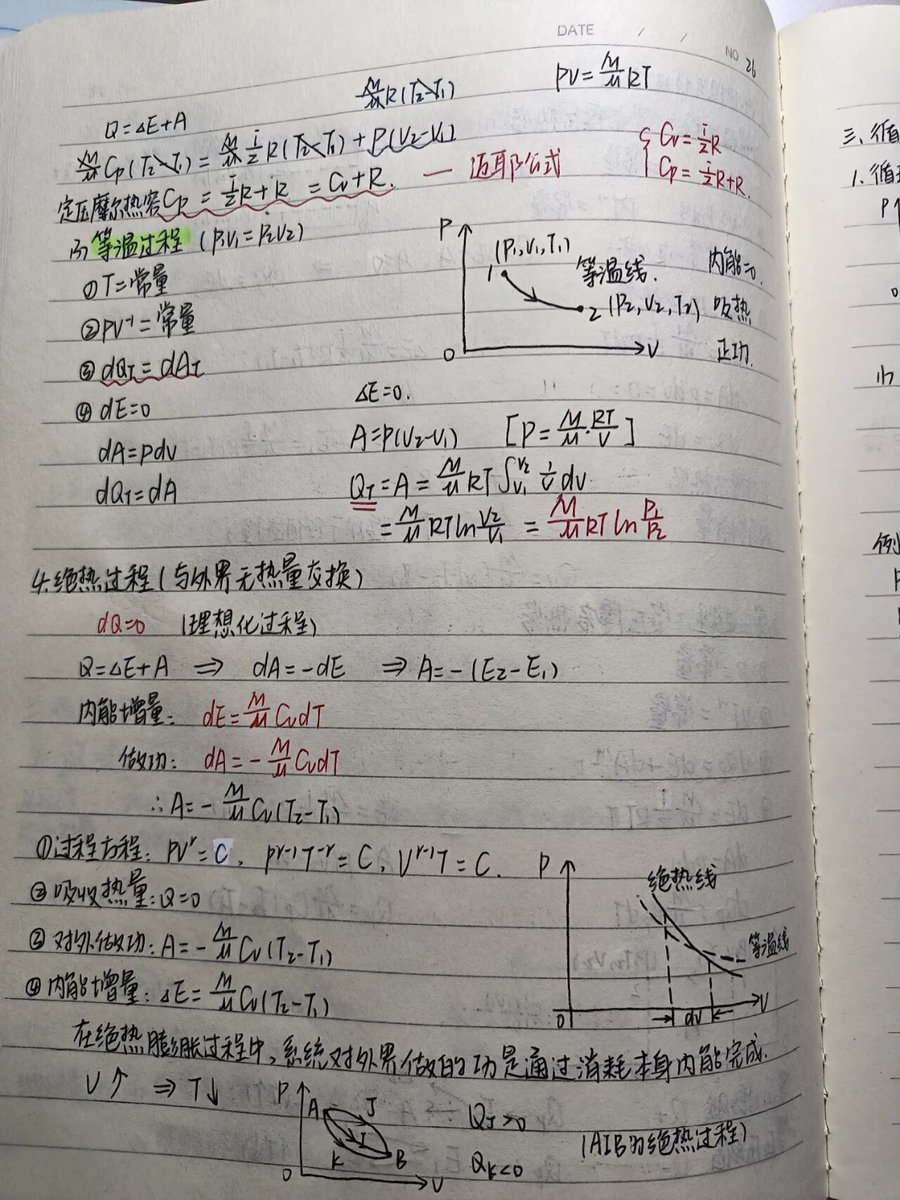 DATE / /
NO 26
M/μ R(T₂-T₁) PV=M/μ RT
Q=ΔE+A
M/μ Cp(T₂-T₁)=M/μ i/2 R(T₂-T₁)+P(V₂-V₁)
{ Cv=i/2 R
Cp=i/2 R+R.
定压摩尔热容Cp = i/2 R+R = Cv+R. — 迈耶公式
3) 等温过程 (P₁V₁=P₂V₂)
①T=常量
②PV⁻¹=常量
③dQT=dAT
④dE=0
dA=pdv
dQT=dA
P
1 (P₁,V₁,T₁)
等温线.
2 (P₂,V₂,T₂)
0 V
内能=0.
吸热
正功.
ΔE=0.
A=P(V₂-V₁) [P=M/μ·RT/V]
QT=A=M/μ RT∫V₁V₂ 1/V dv
=M/μ RT ln V₂/V₁ = M/μ RT ln P₁/P₂
4.绝热过程(与外界无热量交换)
dQ=0 (理想化过程)
Q=ΔE+A ⇒ dA=-dE ⇒ A=-(E₂-E₁)
内能增量: dE=M/μ CvdT
做功: dA=-M/μ CvdT
∴A=-M/μ Cv(T₂-T₁)
①过程方程: PVʳ=C, Pʳ⁻¹T⁻ʳ=C, Vʳ⁻¹T=C.
②吸收热量:Q=0
③对外做功:A=-M/μ Cv(T₂-T₁)
④内能增量:ΔE=M/μ Cv(T₂-T₁)
P
绝热线
等温线
0 dv V
在绝热膨胀过程中,系统对外界做的功是通过消耗本身内能完成.
V↑ ⇒T↓
P
A J
I
K B
0 V
QJ>0
QK<0
(AIB为绝热过程)
三、循
1.循环
P
0
例